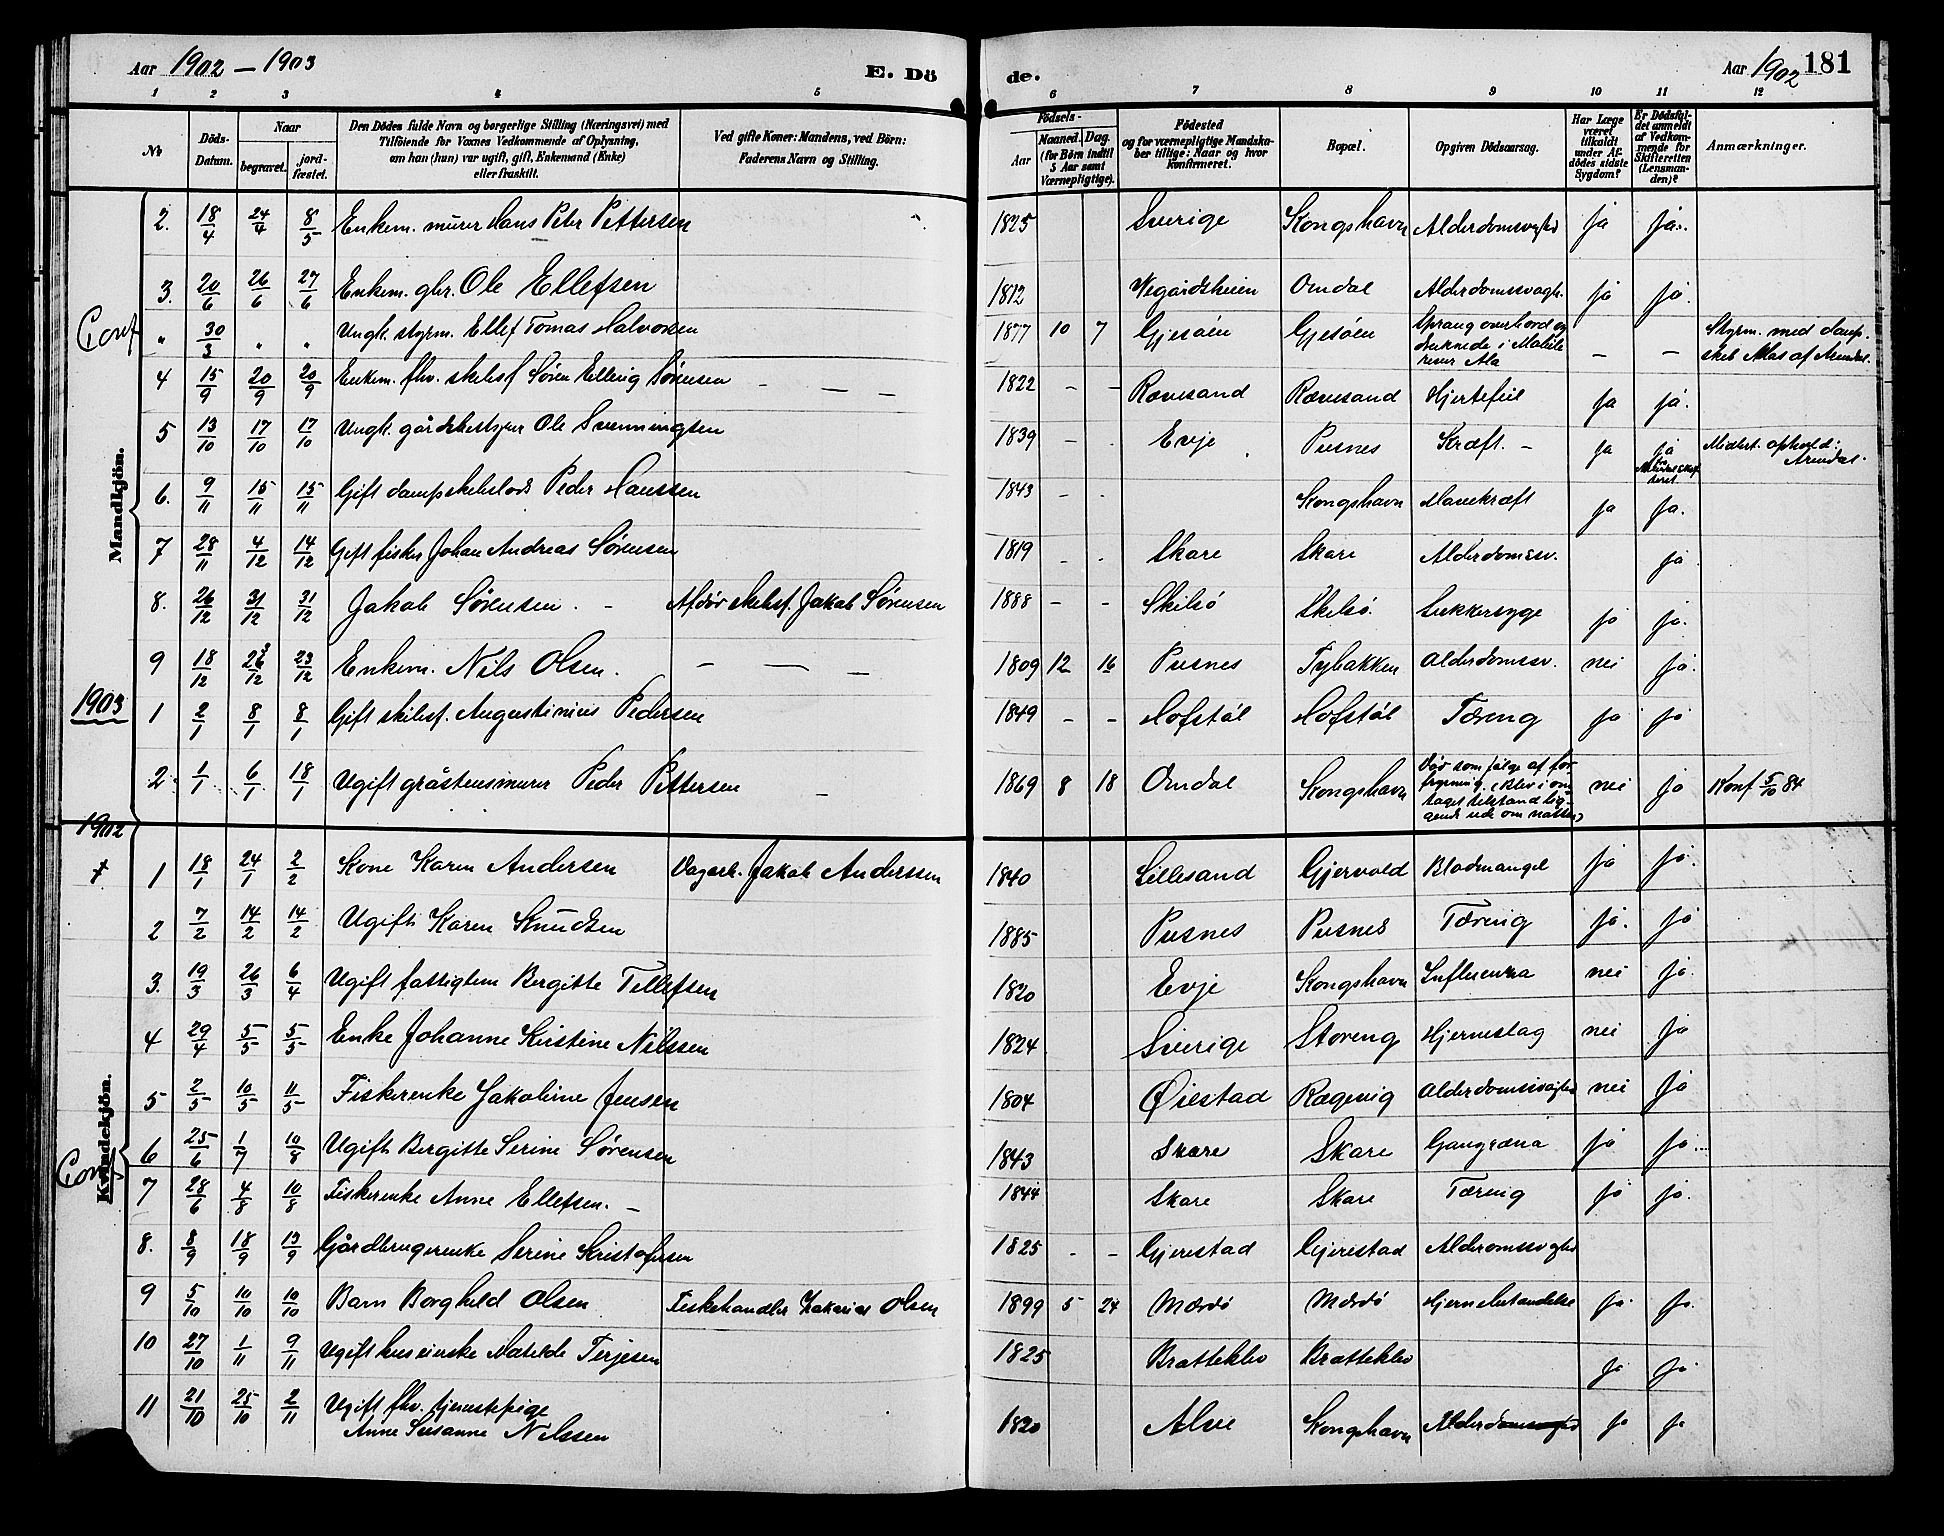 Aar 1902 – 1903 E. Dö de. Aar 1902 181
1 2 3 4 5 6 7 8 9 10 11 12
No Döds-Datum. Naar begravet. jordfæstet. Den Dödes fulde Navn og borgerlige Stilling (Næringsvei) med Tilföiende for Voxnes Vedkommende af Oplysning, om han (hun) var ugift, gift, Enkemand (Enke) eller fraskilt. Ved gifte Koner: Mandens, ved Börn: Faderens Navn og Stilling. Födsels- Aar Maaned. Dag. (for Börn indtil 5 Aar samt Værnepligtige). Födested og for værnepligtige Mandskaber tillige: Naar og hvor konfirmeret. Bopæl. Opgiven Dödsaarsag. Har Læge været tilkaldt under Afdödes sidste Sygdom? Er Dödsfaldet anmeldt af Vedkommende for Skifteretten (Lensmanden)? Anmærkninger.
Conf
Mandkjön.
2. 18/4 24/4 8/5 Enkem. murer Hans Peter Pettersen 1825 Sverige Kongshavn Alderdomssvaghed ja ja.
3. 20/6 26/6 27/6 Enkem. gbr. Ole Ellefsen 1812 Vegårdsheien Omdal Alderdomssvagh. ja ja.
" 30/3 " " Ungk. styrm. Ellef Tomas Halvorsen 1877 10 7 Gjesöen Gjesöen Sprang overbord og druknede i Mobile River Ala – – Styrm. med dampskib Atlas af Arendal.
4 15/9 20/9 20/9 Enkem. fhv. skibsf. Sören Elling Sørensen – – – 1822 – – Rævesand Rævesand Hjertefeil ja ja.
5 13/10 17/10 17/10 Ungk. gårdsbestyrer Ole Svenningsen 1839 – – Evje Pusnes Kræft. – ja ja Midlert. ophold: Arendal.
6. 9/11 15/11 15/11 Gift dampskibslods Peder Hanssen 1843 – . Kongshavn Mavekræft ja ja.
7 28/11 4/12 14/12 Gift fisker Johan Andreas Sørensen 1819 . . Skare Skare Alderdomssv. ja.
8. 26/12 31/12 31/12 Jakob Sørensen. – Afdöd skibsf. Jakob Sørensen 1888 – – Skilsö Skilsö. Sukkersyge ja ja.
9 18/12 23/12 Enkem. Nils Olsen. – – – 1809 12 16 Pusnes Tybakken Alderdomssv. nei ja.
1903
1 2/1 8/1 8/1 Gift skibsf. Augustinius Pedersen 1849 – – Hofstöl Hofstöl Tæring ja ja
2 1/1 6/1 18/1 Ugift gråstensmurer Peder Pettersen – 1869 8 18 Omdal Kongshavn Död som følge af forfrysning. (Blev i omtaget tilstand liggende ude om natten) nei ja Konf 5/10 84
1902
Kvindekjön.
Conf
1 18/1 24/1 2/2 Kone Karen Andersen Dagarb. Jakob Anderssen 1840 Lillesand Gjervold Blodmangel ja ja.
2 7/2 14/2 14/2 Ugift Karen Knudsen 1885 Pusnes Pusnes Tæring ja. ja
3. 19/3 26/3 6/4 Ugift fattiglem Bergitte Tellefsen 1820 Evje Kongshavn Influenza nei ja.
4 29/4 5/5 5/5 Enke Johanne Kirstine Nilssen 1824 Sverige Storeng Hjerneslag nei ja
5 2/5 10/5 11/5 Fiskerenke Jakobine Jensen 1804 Øiestad Rægevig Alderdomssvaghed nei ja
6 25/6 1/7 10/8 Ugift Bergitte Serine Sørensen 1843 Skare Skare Gangræna ja ja.
7 28/6 4/8 10/8 Fiskerenke Anne Ellefsen. – 1844 Skare Skare Tæring ja ja.
8. 8/9 18/9 19/9 Gårdbrugerenke Serine Kristofersen 1825 . – Gjerestad Gjerestad Alderomssvaghed
9 5/10 10/10 10/10 Barn Borghild Olsen Fiskehandler Zakarias Olsen 1899 5 24 Mærdö Mærdö Hjernebetændelse ja ja.
10 27/10 1/11 9/11 Ugift huseierske Matilde Terjesen 1825 Bratteklev Bratteklev ja ja.
11 21/10 25/10 2/11 Ugift fhv. tjenestepige
Anne Susanne Nilssen 1820 Alve Kongshavn Alderdomssvaghed ja ja